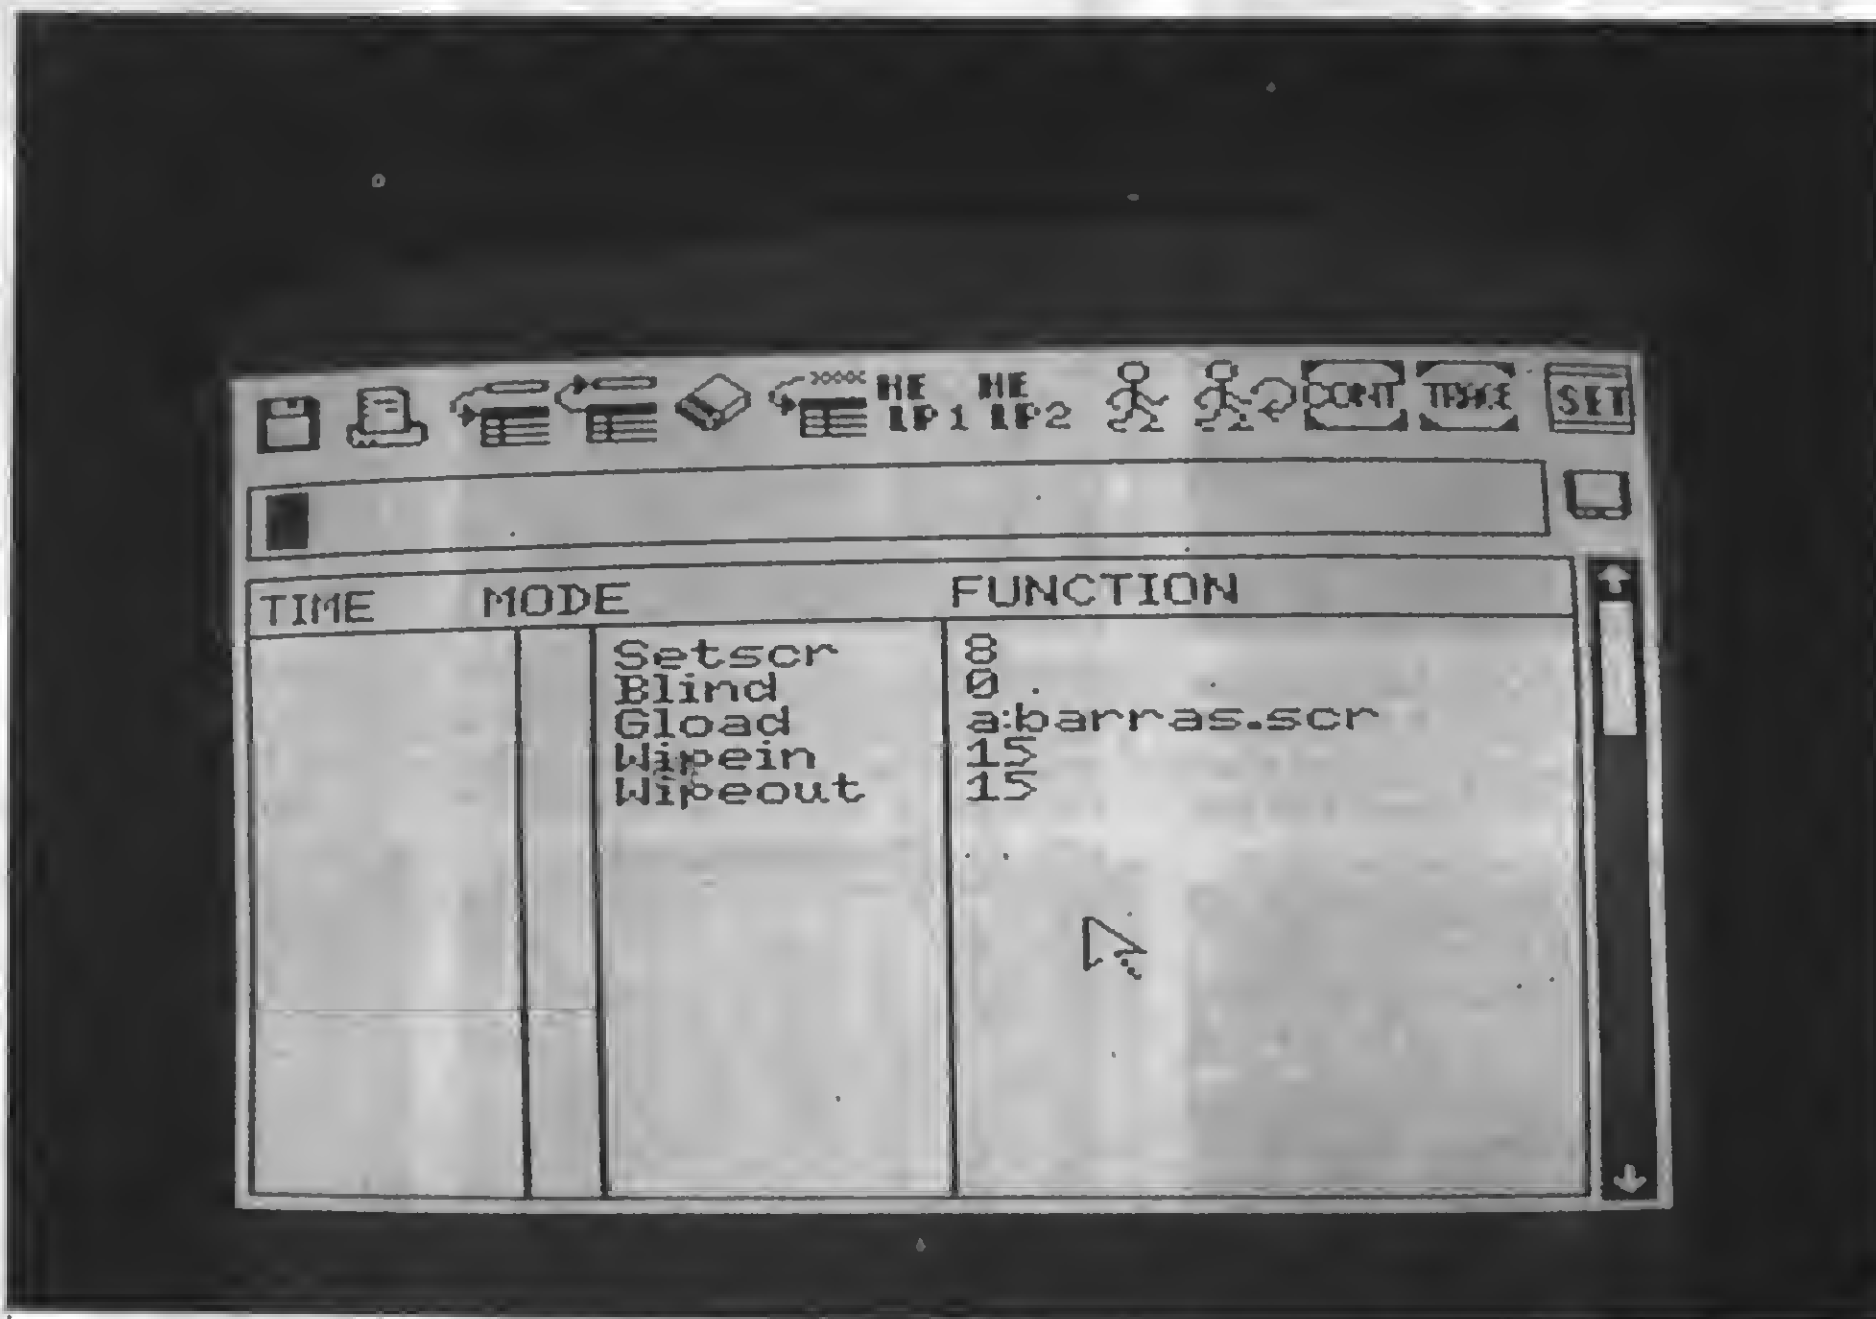 HE HE CONT TRACE SET
LP1 LP2
TIME MODE FUNCTION
Setscr 8
Blind 0
Gload a:barras.scr
Wipein 15
Wipeout 15